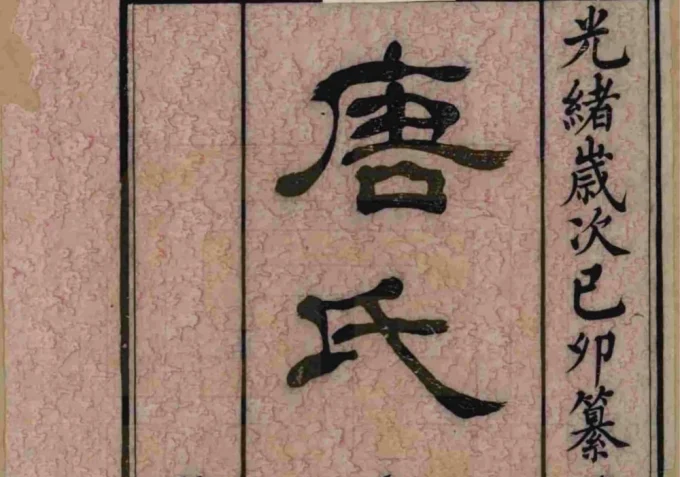 光緒歲次己卯纂
唐氏